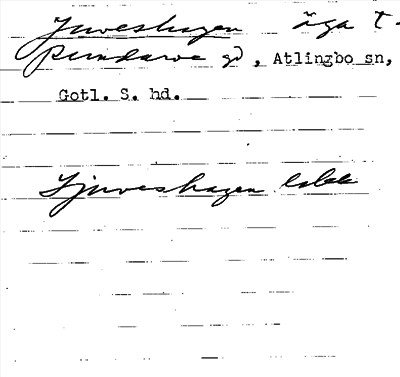 Tjuveshagen äga t.
Pundarve gd, Atlingbo sn,
Gotl. S. hd.
Tjuveshagen